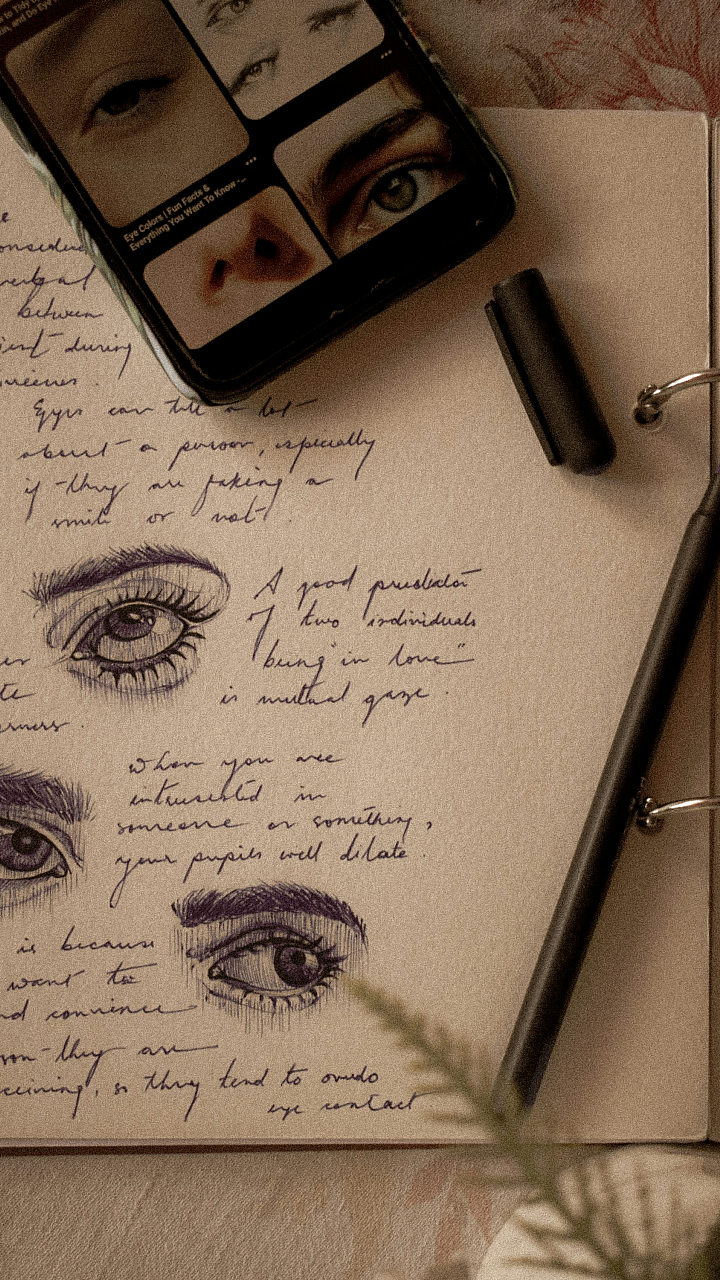 How to Tidy
and Do Eye
Eye Colors | Fun Facts &
Everything You Want To Know -...
between
during
Eyes can tell a lot
about a person, especially
if they are faking a
smile or not.
A good predictor
of two individuals
being "in love"
is mutual gaze.
when you are
intrusested in
someone or something,
your pupils will dilate.
is because
want to
convience
they are
so they tend to ovudo
eye contact